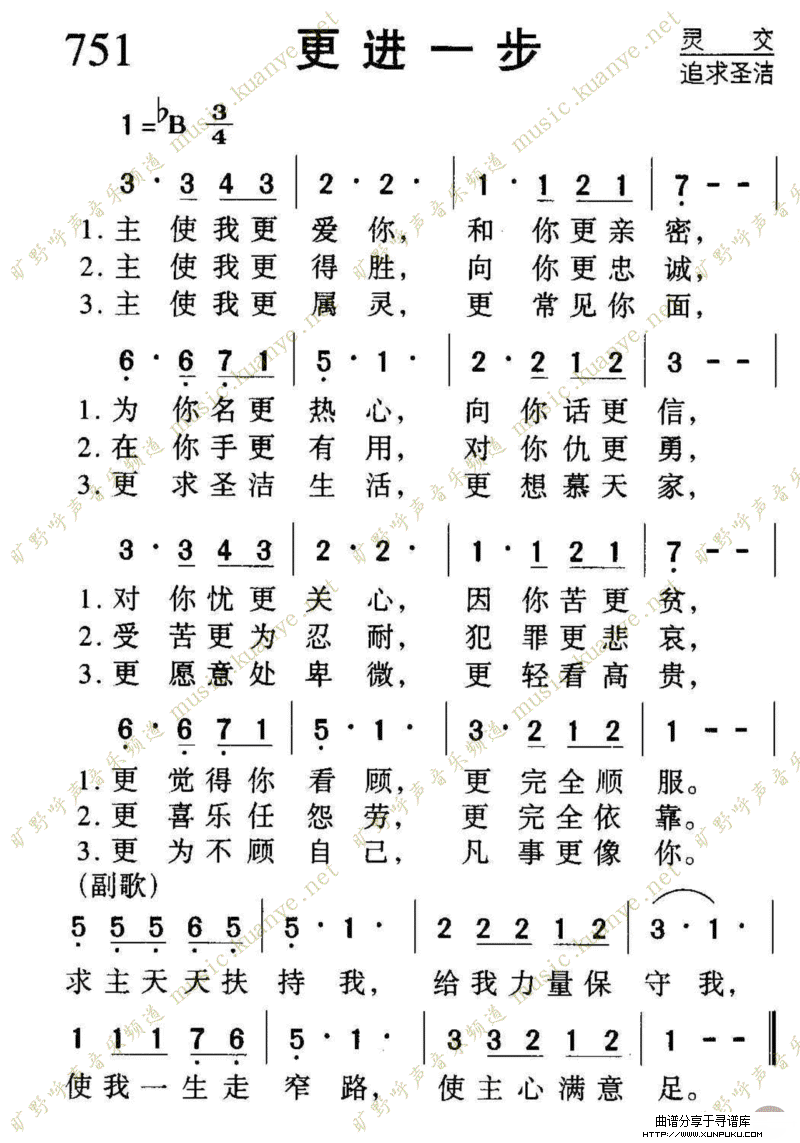 751 更进一步 灵 交
追求圣洁
1=♭B 3/4
3 · 3 4 3 | 2 · 2 · | 1 · 1 2 1 | 7 - - |
1.主 使我更 爱 你, 和 你更亲 密,
2.主 使我更 得 胜, 向 你更忠 诚,
3.主 使我更 属 灵, 更 常见你 面,
6 · 6 7 1 | 5 · 1 · | 2 · 2 1 2 | 3 - - |
1.为 你名更 热 心, 向 你话更 信,
2.在 你手更 有 用, 对 你仇更 勇,
3.更 求圣洁 生 活, 更 想慕天 家,
3 · 3 4 3 | 2 · 2 · | 1 · 1 2 1 | 7 - - |
1.对 你忧更 关 心, 因 你苦更 贫,
2.受 苦更为 忍 耐, 犯 罪更悲 哀,
3.更 愿意处 卑 微, 更 轻看高 贵,
6 · 6 7 1 | 5 · 1 · | 3 · 2 1 2 | 1 - - |
1.更 觉得你 看 顾, 更 完全顺 服。
2.更 喜乐任 怨 劳, 更 完全依 靠。
3.更 为不顾 自 己, 凡 事更像 你。
(副歌)
5 5 5 6 5 | 5 · 1 · | 2 2 2 1 2 | 3 · 1 · |
求主天天扶 持 我, 给我力量保 守 我,
1 1 1 7 6 | 5 · 1 · | 3 3 2 1 2 | 1 - - ||
使我一生走 窄 路, 使主心满意 足。
旷野呼声音乐频道 music.kuanye.net
曲谱分享于寻谱库
HTTP://WWW.XUNPUKU.COM